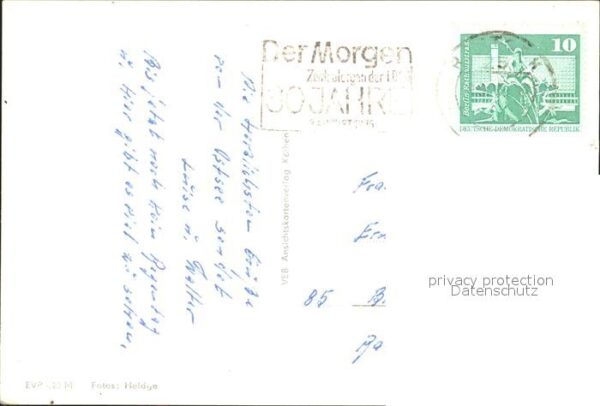 Der Morgen
Zentralorgan der LDPD
30 JAHRE
10
Berlin Rathausstraße
DEUTSCHE DEMOKRATISCHE REPUBLIK
Die herzlichsten Grüße
von der Ostsee sendet
Luise u. Walter
Bis jetzt noch kein Regentag
u. hier gibt es viel zu sehen.
VEB Ansichtskartenverlag Köthen
Fra.
Ern
85 B.
privacy protection
Datenschutz
EVP 0,20 M Fotos: Heldge